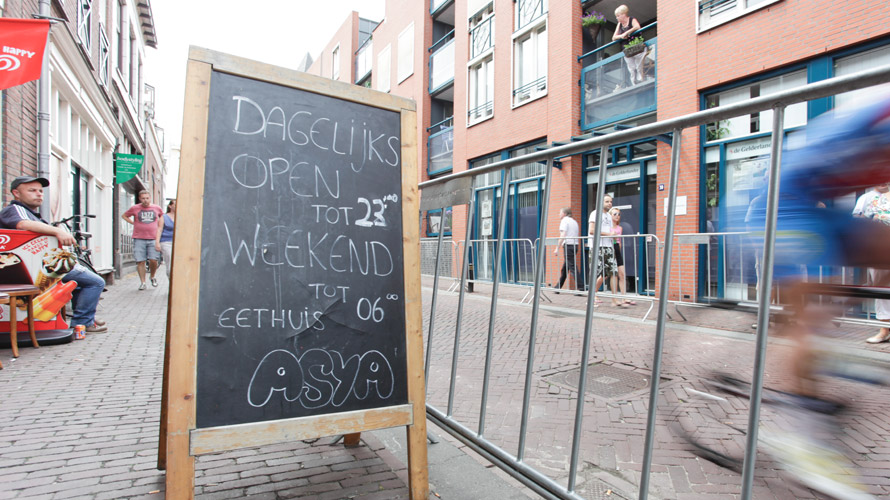 HAPPY
DAGELIJKS
OPEN
TOT 23.00
WEEKEND
TOT
EETHUIS 06.00
ASYA
de Gelderlander